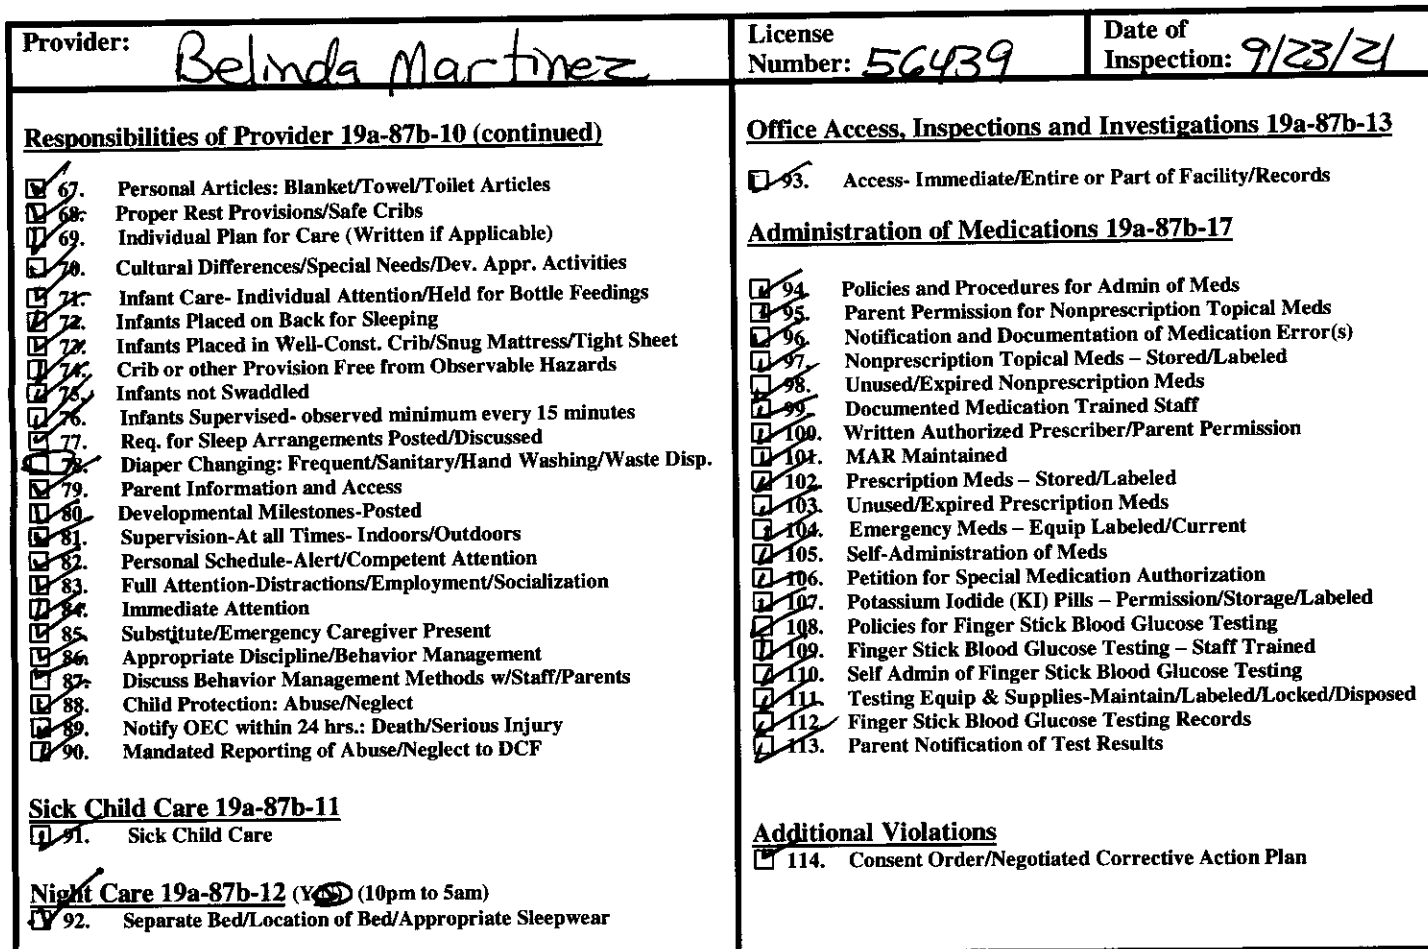 Provider: Belinda Martinez
License Number: 56439
Date of Inspection: 9/23/21
Responsibilities of Provider 19a-87b-10 (continued)
67. Personal Articles: Blanket/Towel/Toilet Articles
68. Proper Rest Provisions/Safe Cribs
69. Individual Plan for Care (Written if Applicable)
70. Cultural Differences/Special Needs/Dev. Appr. Activities
71. Infant Care- Individual Attention/Held for Bottle Feedings
72. Infants Placed on Back for Sleeping
73. Infants Placed in Well-Const. Crib/Snug Mattress/Tight Sheet
74. Crib or other Provision Free from Observable Hazards
75. Infants not Swaddled
76. Infants Supervised- observed minimum every 15 minutes
77. Req. for Sleep Arrangements Posted/Discussed
78. Diaper Changing: Frequent/Sanitary/Hand Washing/Waste Disp.
79. Parent Information and Access
80. Developmental Milestones-Posted
81. Supervision-At all Times- Indoors/Outdoors
82. Personal Schedule-Alert/Competent Attention
83. Full Attention-Distractions/Employment/Socialization
84. Immediate Attention
85. Substitute/Emergency Caregiver Present
86. Appropriate Discipline/Behavior Management
87. Discuss Behavior Management Methods w/Staff/Parents
88. Child Protection: Abuse/Neglect
89. Notify OEC within 24 hrs.: Death/Serious Injury
90. Mandated Reporting of Abuse/Neglect to DCF
Sick Child Care 19a-87b-11
91. Sick Child Care
Night Care 19a-87b-12 (Y/N) (10pm to 5am)
92. Separate Bed/Location of Bed/Appropriate Sleepwear
Office Access, Inspections and Investigations 19a-87b-13
93. Access- Immediate/Entire or Part of Facility/Records
Administration of Medications 19a-87b-17
94. Policies and Procedures for Admin of Meds
95. Parent Permission for Nonprescription Topical Meds
96. Notification and Documentation of Medication Error(s)
97. Nonprescription Topical Meds – Stored/Labeled
98. Unused/Expired Nonprescription Meds
99. Documented Medication Trained Staff
100. Written Authorized Prescriber/Parent Permission
101. MAR Maintained
102. Prescription Meds – Stored/Labeled
103. Unused/Expired Prescription Meds
104. Emergency Meds – Equip Labeled/Current
105. Self-Administration of Meds
106. Petition for Special Medication Authorization
107. Potassium Iodide (KI) Pills – Permission/Storage/Labeled
108. Policies for Finger Stick Blood Glucose Testing
109. Finger Stick Blood Glucose Testing – Staff Trained
110. Self Admin of Finger Stick Blood Glucose Testing
111. Testing Equip & Supplies-Maintain/Labeled/Locked/Disposed
112. Finger Stick Blood Glucose Testing Records
113. Parent Notification of Test Results
Additional Violations
114. Consent Order/Negotiated Corrective Action Plan